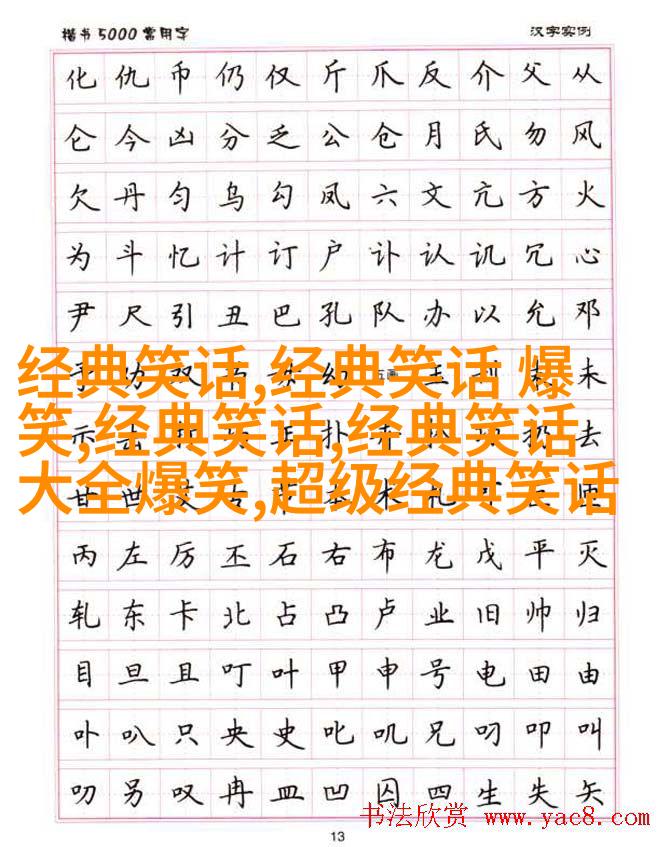 楷书5000常用字 汉字实例
化仇币仍仅斤爪反介父从
仑今凶分乏公仓月氏勿风
欠丹匀乌勾凤六文亢方火
为斗忆计订户讣认讥冗心
尹尺引丑巴孔队办以允邓
经典笑话,经典笑话 爆
笑,经典笑话,经典笑话
大全爆笑,超级经典笑话
未
去
丙左厉丕石右布龙戊平灭
轧东卡北占凸卢业旧帅归
目旦且叮叶甲申号电田由
卟叭只央史叱叽兄叼叩叫
叨另叹冉皿凹囚四生失矢
书法欣赏 www.yac8.com
13